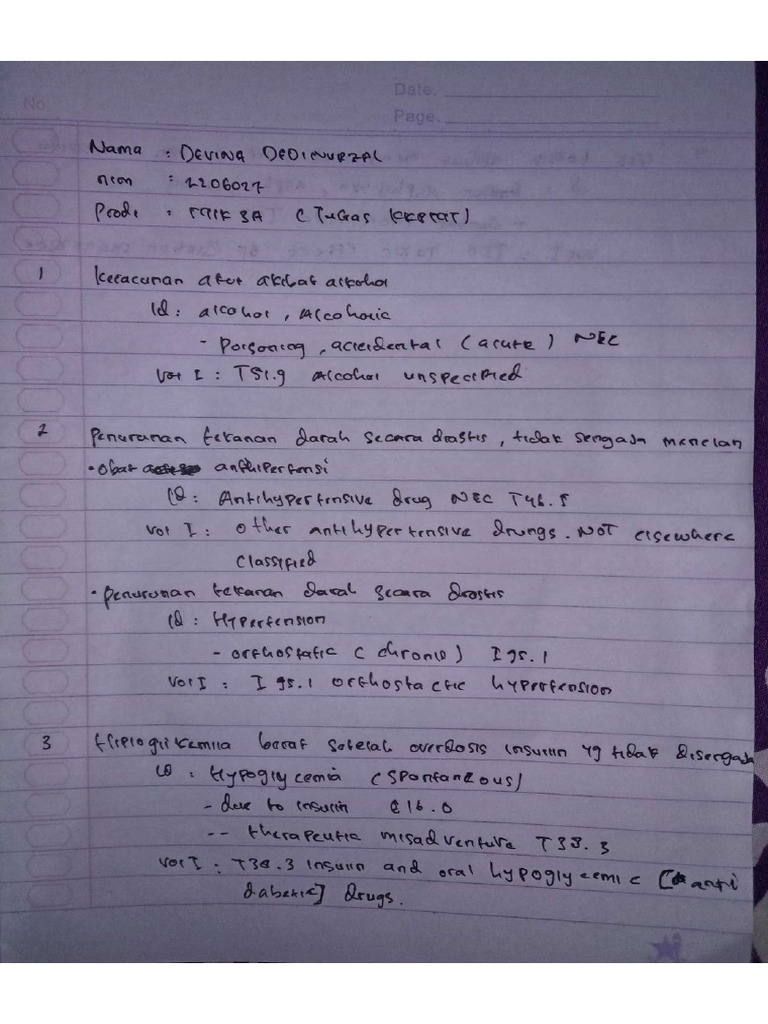 No
Date.
Page.
Nama : DEVINA
nim : 2206027
Prodi : 3A ( TUGAS
1 keracunan akut akibat alkohol
ID : alcohol , Alcoholic
- Poisoning , accidental ( acute ) NEC
Vol I : T51.9 Alcohol unspecified
2 Penurunan tekanan darah secara drastis , tidak sengaja menelan
• obat antihipertensi
ID : Antihypertensive drug NEC T46.5
Vol I : other antihypertensive drungs . NOT elsewhere
Classified
• penurunan tekanan darah secara drastis
ID : Hypertension
- orthostatic ( chronic ) I 95.1
Vol I : I 95.1 orthostactic hypertension
3 berat setelah overdosis insulin yg tidak disengaja
ID : Hypoglycemia (spontaneous)
- due to insulin E16.0
-- therapeutic misadventure T38.3
Vol I : T38.3 insulin and oral hypoglycemic [ anti
diabetic] drugs.